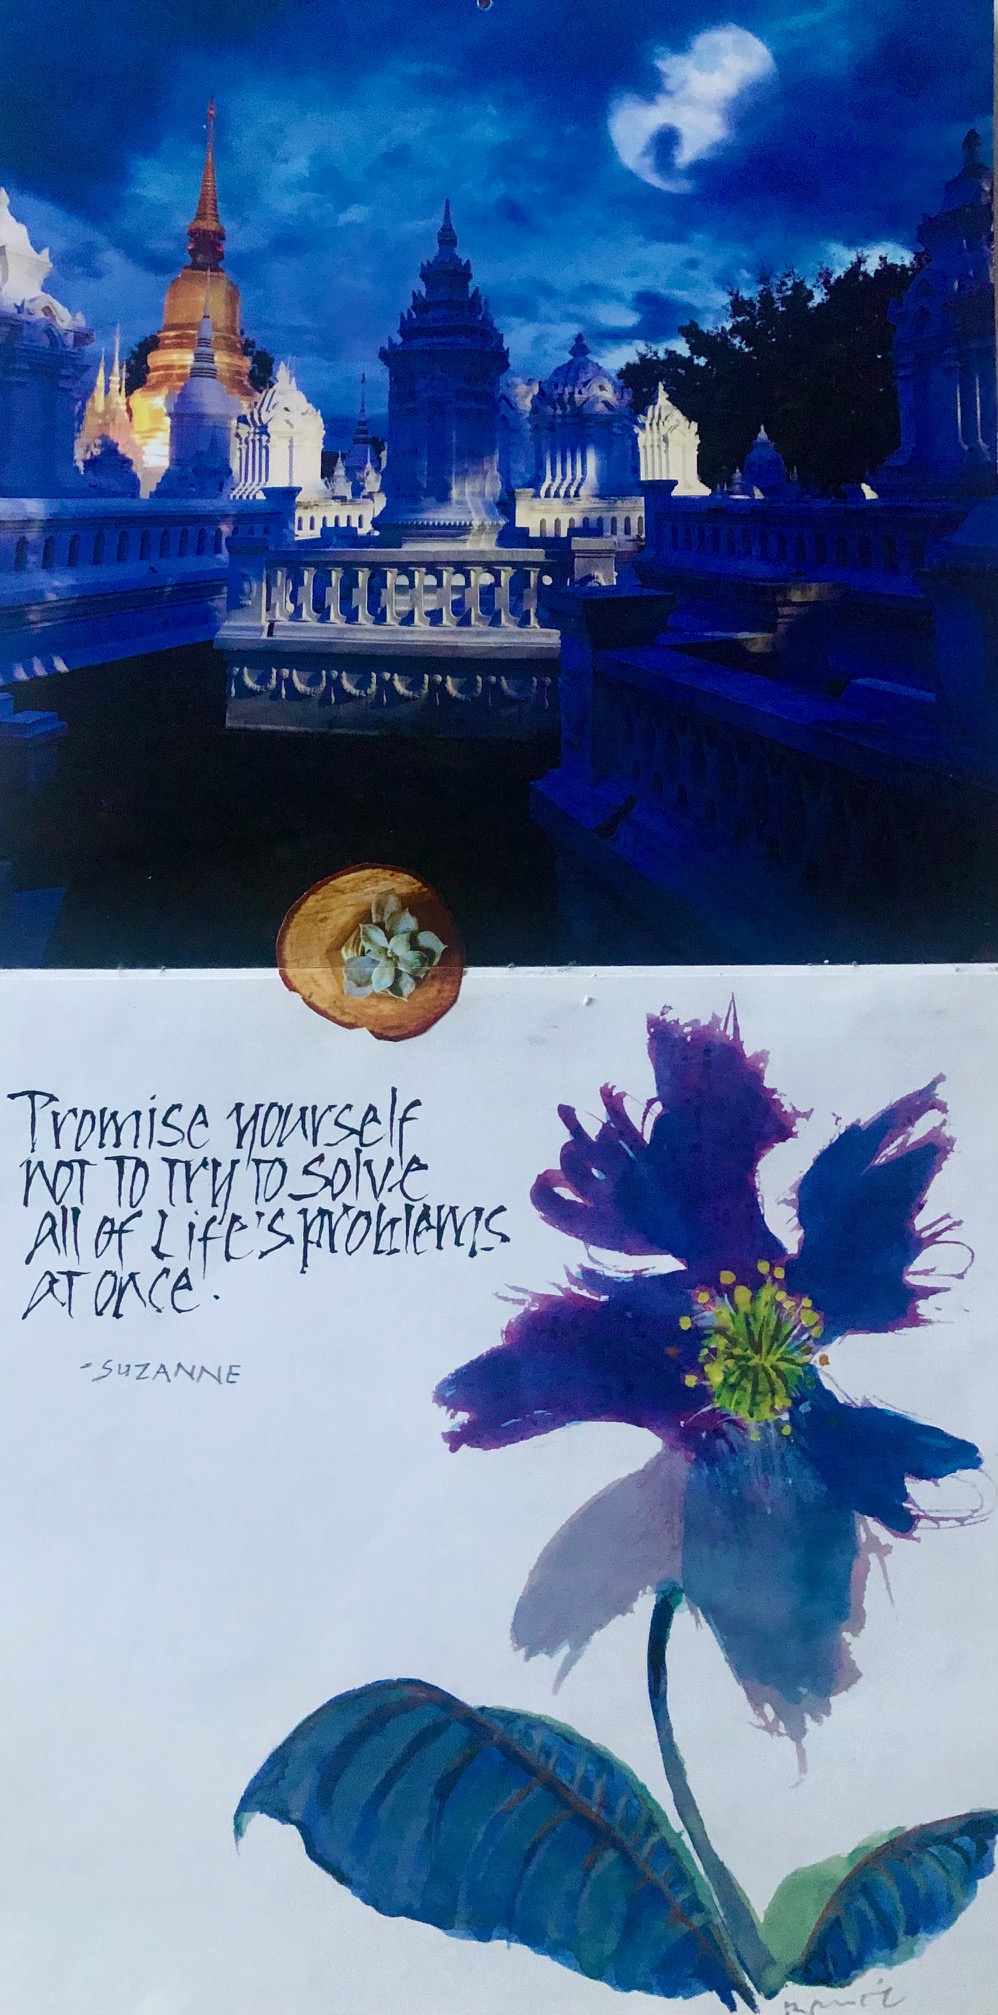 Promise yourself
not to try to solve
all of Life's problems
at once.
-SUZANNE